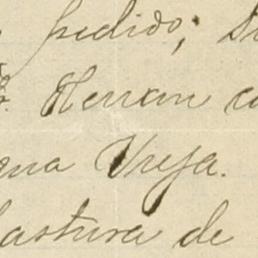 pedido; D
Herran c
na Vieja.
astura de